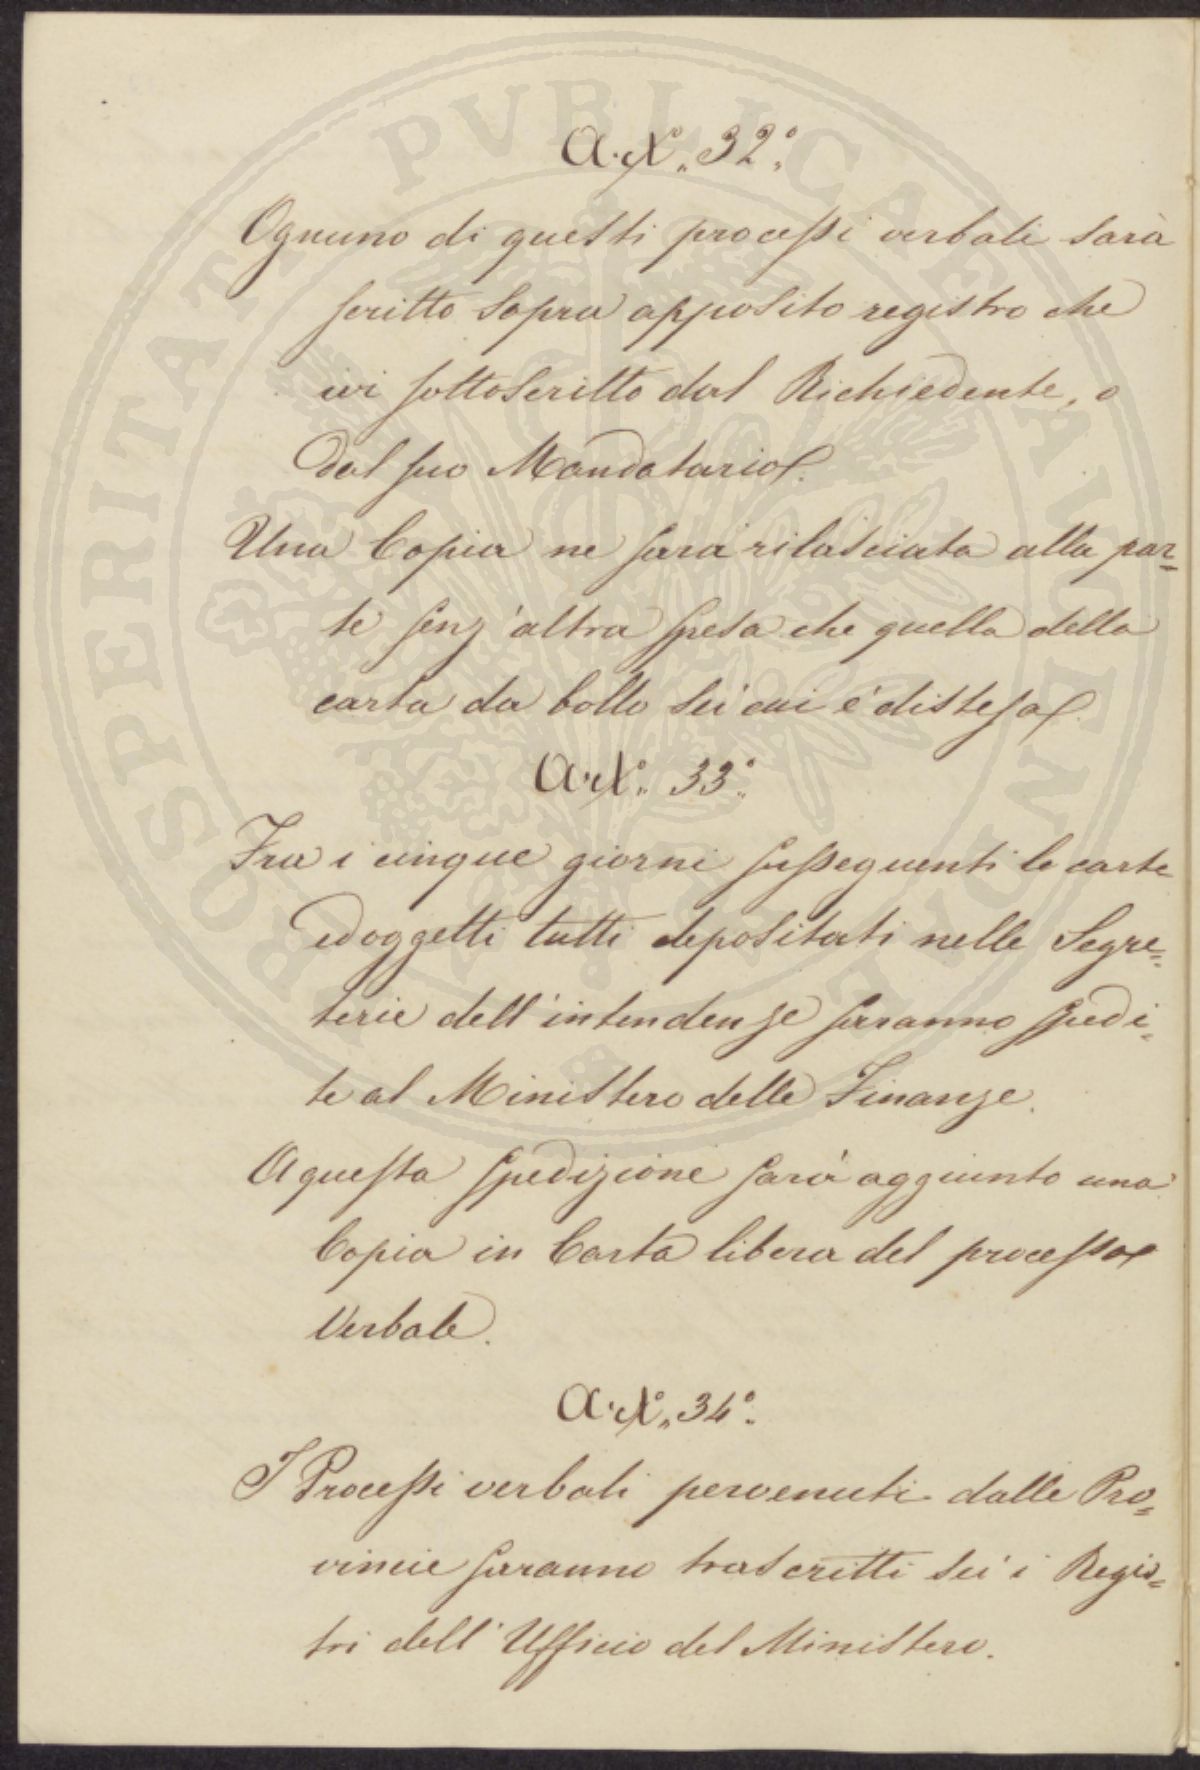 Art.° 32°
Ognuno di questi processi verbali sarà
scritto sopra apposito registro che
ivi sottoscritto dal Richiedente, o
dal suo Mandatario.
Una Copia ne sarà rilasciata alla par=
te senz'altra spesa che quella della
carta da bollo sù cui é distesa.
Art.° 33°
Fra i cinque giorni susseguenti le carte
ed oggetti tutti depositati nelle Segre=
terie dell'intendenze saranno spedi=
te al Ministero delle Finanze.
A questa spedizione sarà aggiunto una
Copia in Carta libera del processo
Verbale.
Art.° 34°
I Processi verbali pervenuti dalle Pro=
vincie saranno trascritti sù i Regis=
tri dell'Ufficio del Ministero.
PROSPERITATI PVBLICAE AVGENDAE